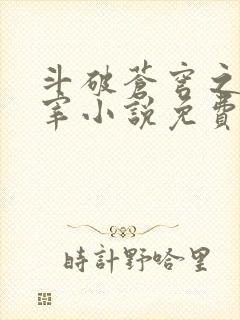 斗破蒼穹之
宰小說免費
時計野哈里